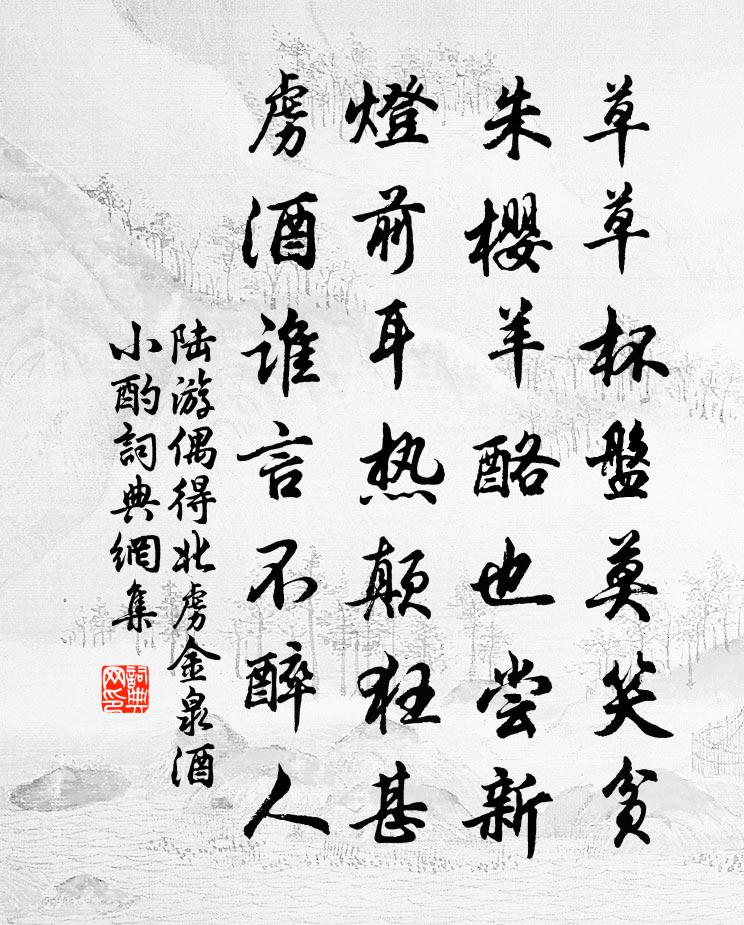 草草杯盤莫笑貧
朱櫻羊酪也尝新
燈前耳热颠狂甚
虏酒谁言不醉人
陆游偶得北虏金泉酒
小酌詞典網集
詞典
网印